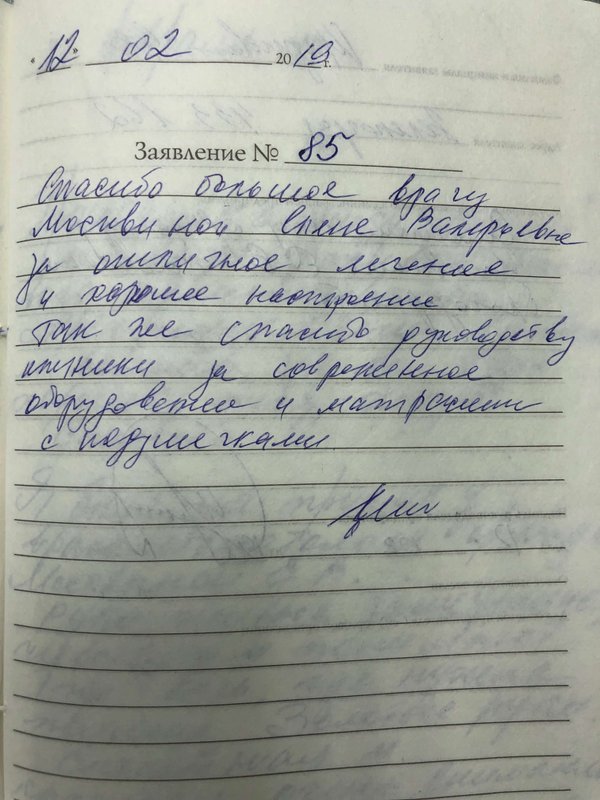 "12" 02 2019 г.
Заявление № 85
Спасибо большое врачу
Москвиной Елене Валерьевне
за отличное лечение
и хорошее настроение
так же спасибо руководству
клиники за современное
оборудование и матрасики
с подушечками.